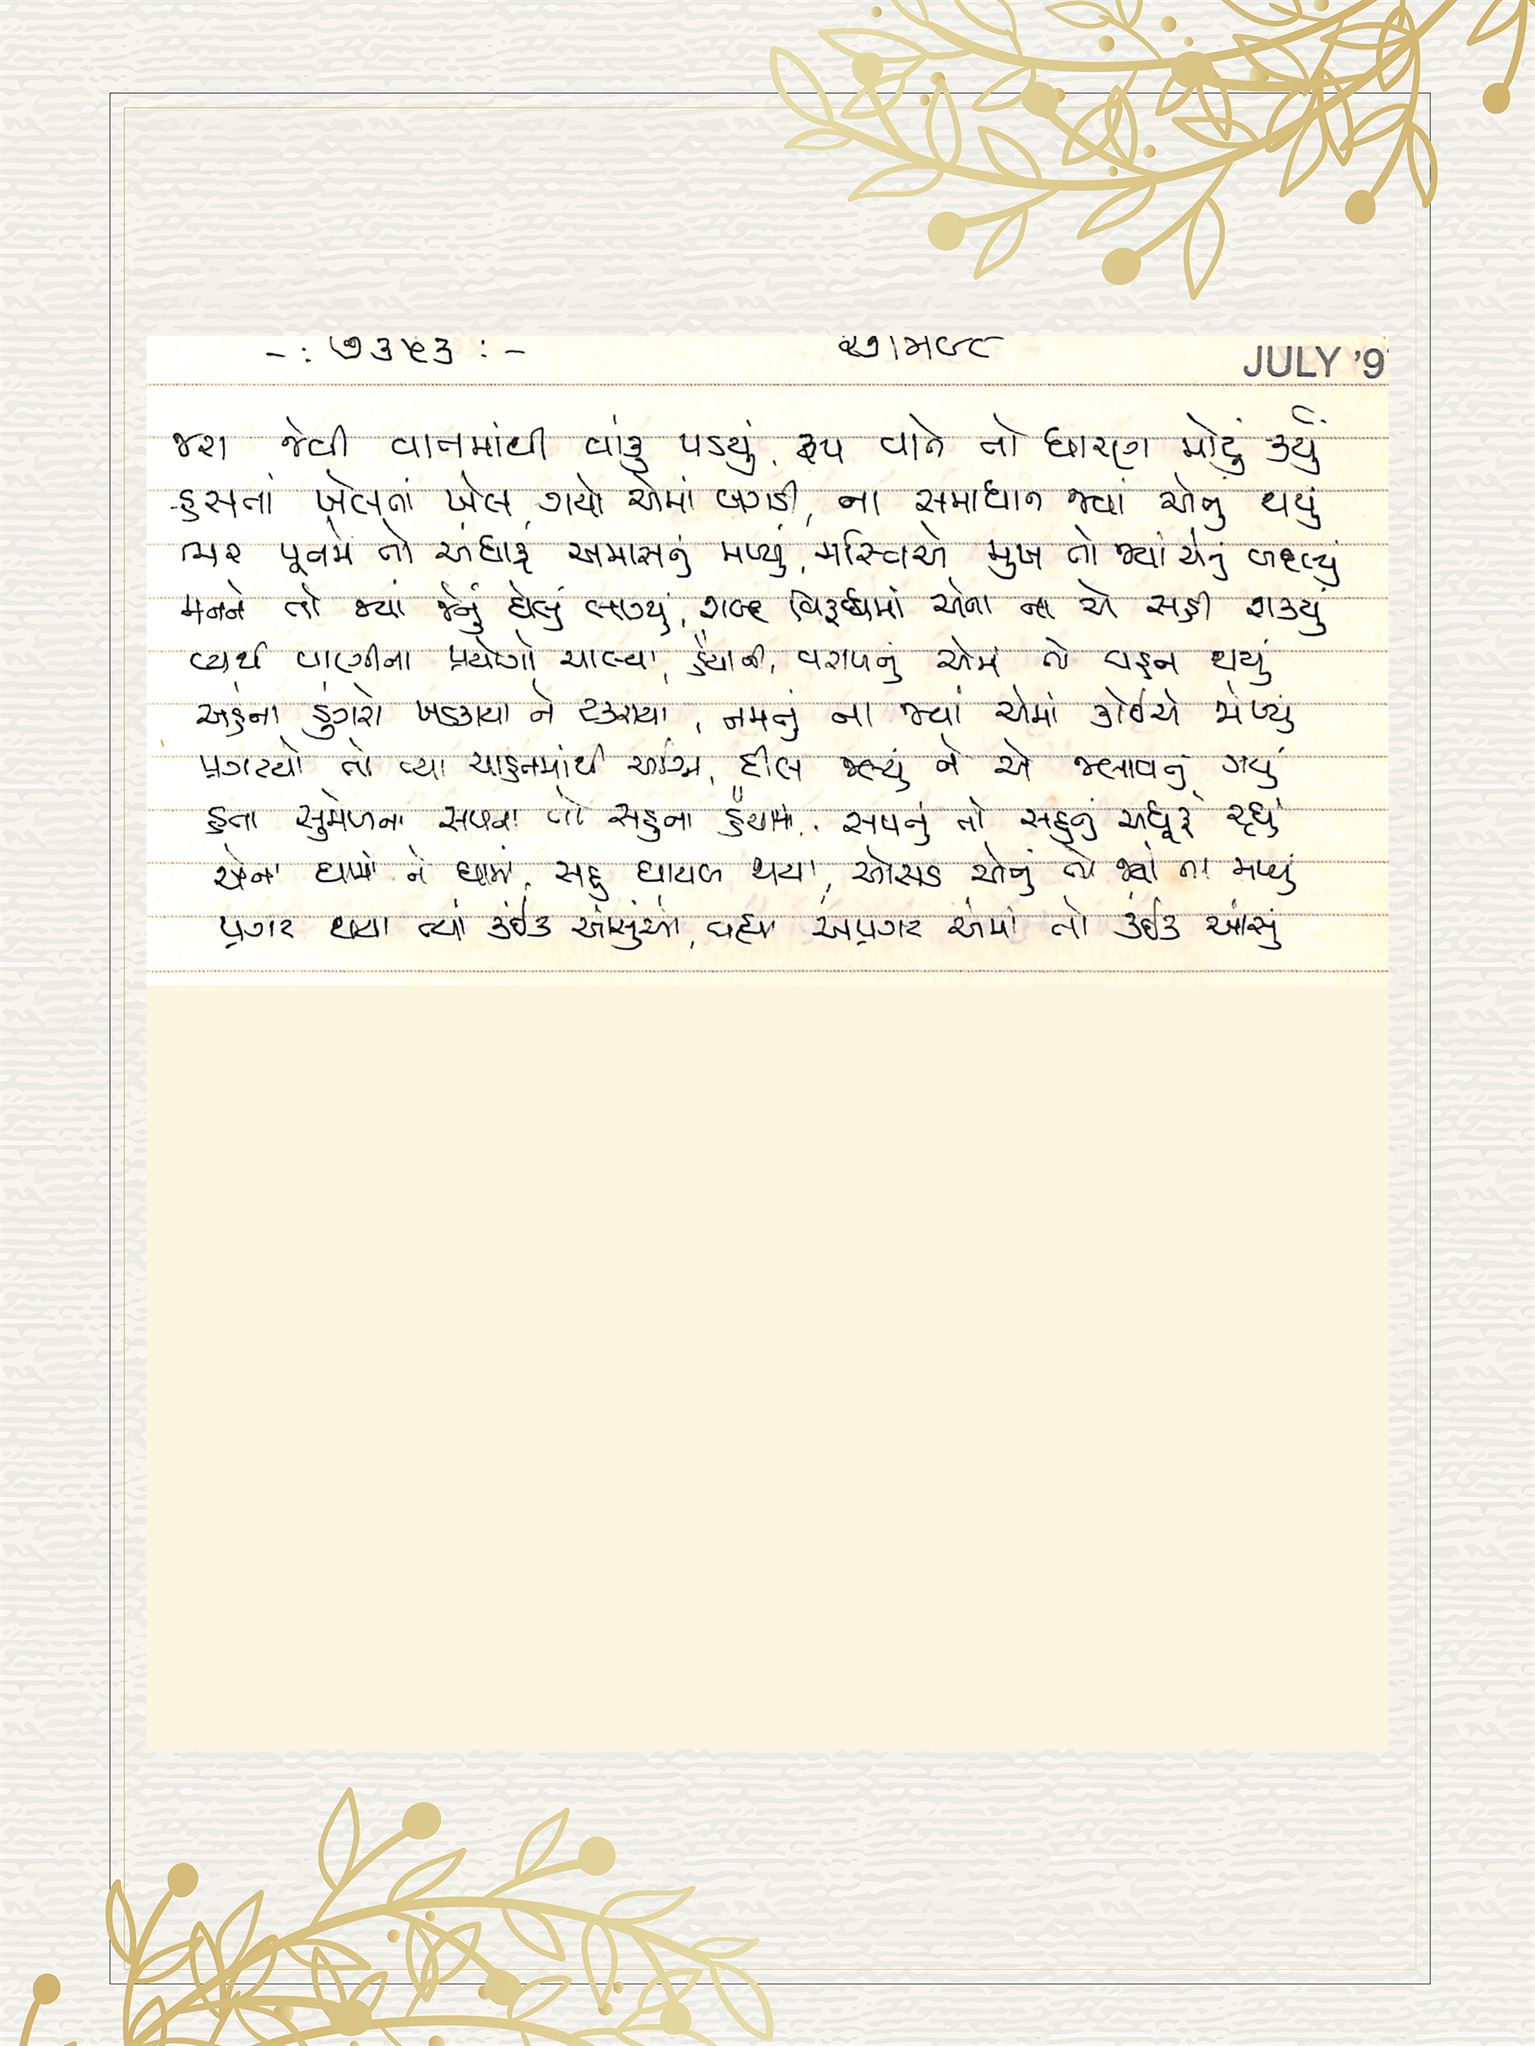 -: ૭૩૫૩ :- ૨૭।મ૯૮ JULY '9
જરા જેવી વાતમાંથી વાંકુ પડયું, રૂપ વાતે તો ધારણ મોટું કર્યું
હસતાં ખેલતાં ખેલ ગયો એમાં બગડી, ના સમાધાન જ્યાં એનું થયું
ભર પૂનમે તો અંધારૂં અમાસનું મળ્યું, મસ્તિએ મુખ તો જ્યાં એનું બદલ્યું
મનને તો જ્યાં જેનું ઘેલું લાગ્યું, શબ્દ વિરૂધ્ધમાં એના ના એ સહી શક્યું
વ્યર્થ વાણીના પ્રયોગો ચાલ્યા, હૈયાની, વરાળનું એમાં તો વહન થયું
અહંના ડુંગરો ખડકાયા ને ટકરાયા, નમવું ના જ્યાં એમાં કોઈએ
પ્રગટયો તો ત્યાં ચાહતમાંથી અગ્નિ, દીલ જલ્યું ને એ જલાવતું ગયું
હતા સુમેળના સપના તો સહુના હૈયામાં, સપનું તો સહુનું અધૂરૂં રહ્યું
એના ઘામાં ને ઘામાં, સહુ ઘાયલ થયા, ઓસડ એનું તો જ્યાં ના મળ્યું
પ્રગટ થયા ત્યાં કંઈક આંસુંઓ, વહ્યા અપ્રગટ એમાં તો કંઈક આંસું